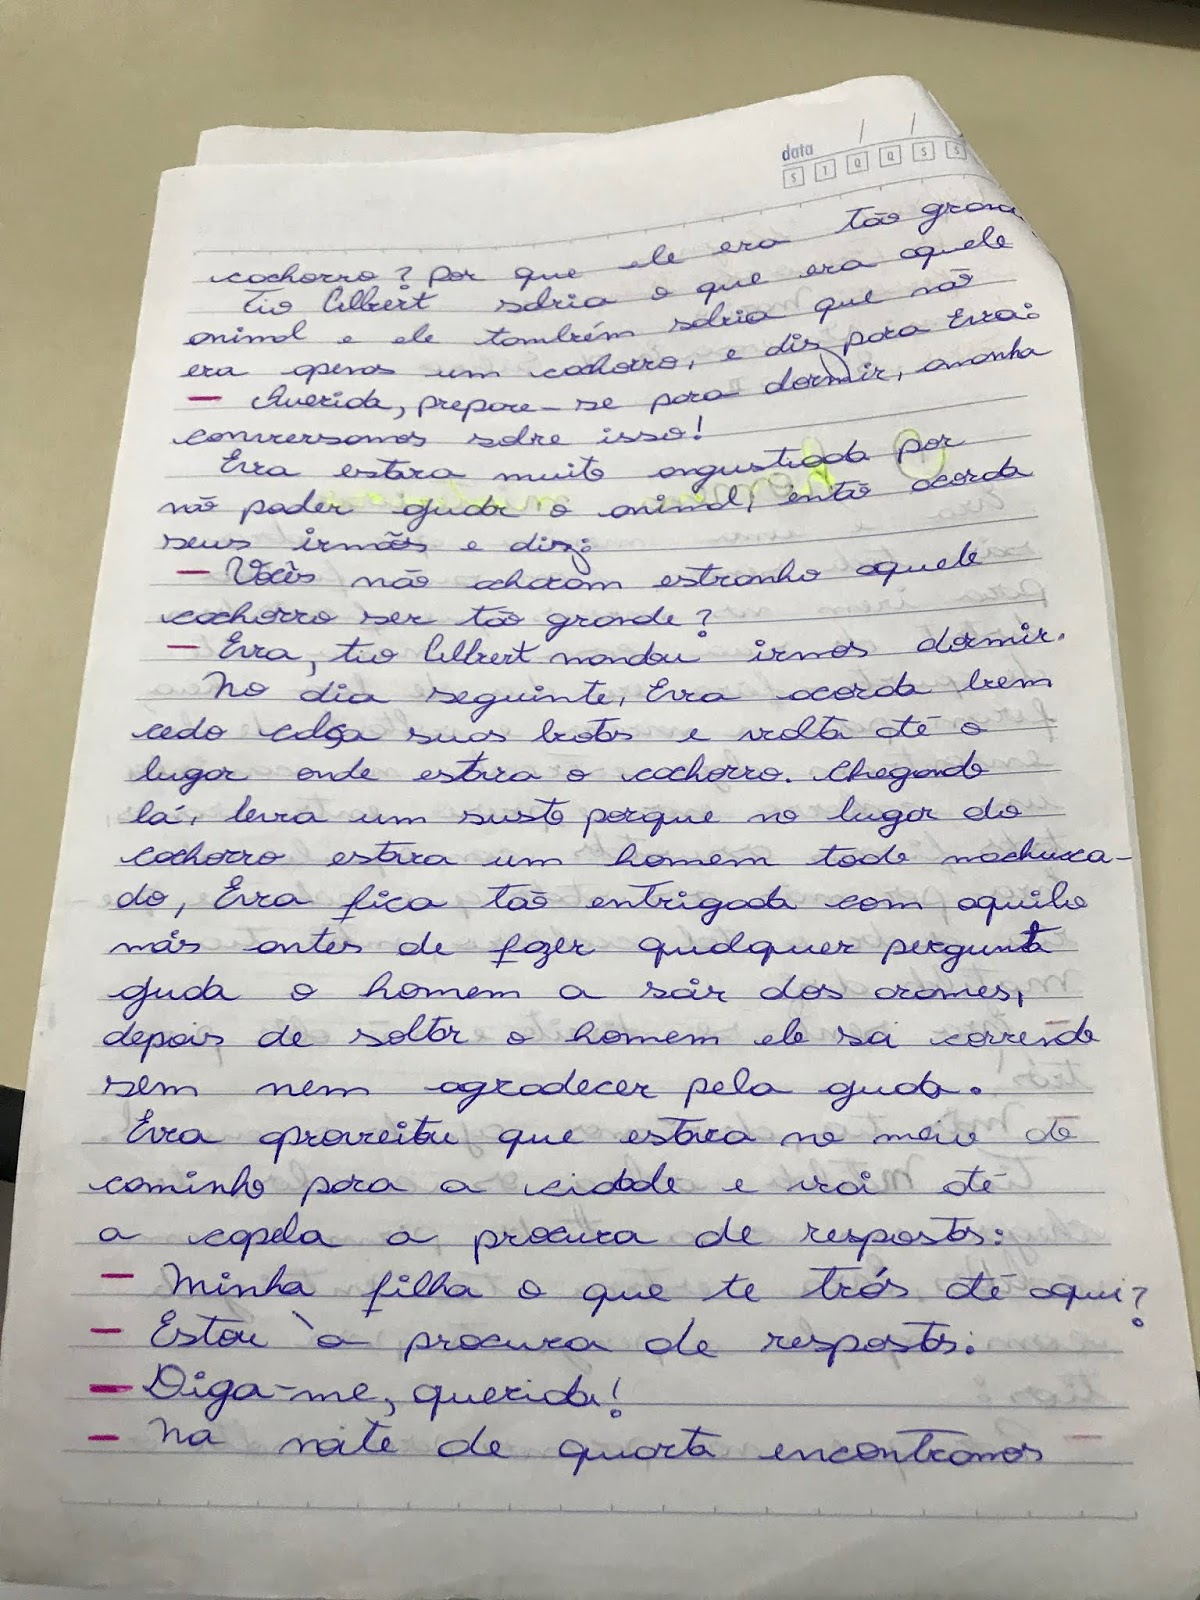 data / /
S T Q Q S S
cachorro? Por que ele era tão
Tio Albert sabia o que era aquele
animal e ele também sabia que não
era apenas um cachorro, e dis para Evra:
— Querida, prepare-se para dormir, amanha
conversamos sobre isso!
Evra estava muito angustiada por
não poder ajudar o animal, então acorda
seus irmãs e diz:
— Vocês não acharam estranho aquele
cachorro ser tão grande?
— Evra, tio Albert mandou irmos dormir.
No dia seguinte, Evra acorda bem
cedo calça suas botas e volta até o
lugar onde estava o cachorro. Chegando
lá, leva um susto porque no lugar do
cachorro estava um homem todo machuca-
do, Evra fica tão entrigada com aquilo
más antes de fazer qualquer pergunta
ajuda o homem a sair dos arames,
depois de soltar o homem ele sai correndo
sem nem agradecer pela ajuda.
Evra aproveitou que estava no meio do
caminho para a cidade e vai até
a capela a procura de respostas:
— Minha filha o que te trás até aqui?
— Estou à procura de respostas.
— Diga-me, querida!
— Na noite de quarta encontramos